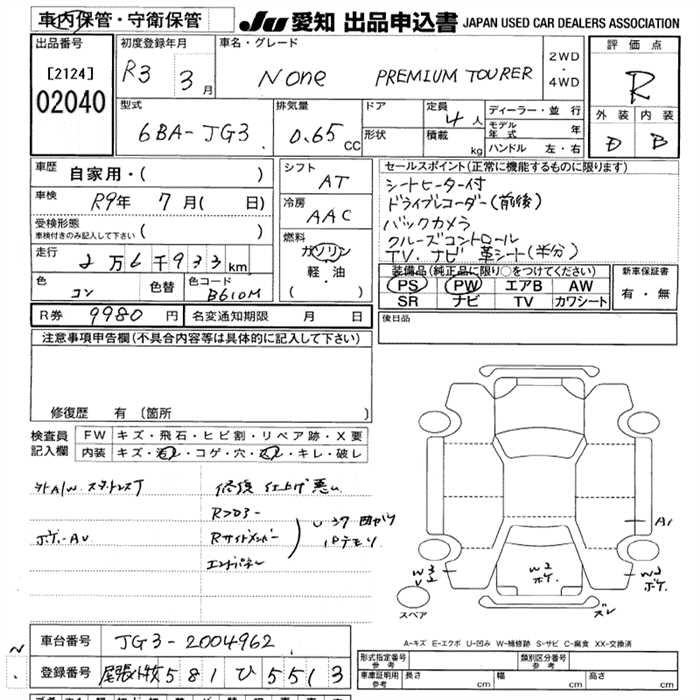 車内保管・守衛保管
JU 愛知 出品申込書 JAPAN USED CAR DEALERS ASSOCIATION
出品番号
[2124]
02040
初度登録年月
R3 3月
車名・グレード
None PREMIUM TOURER
2WD・4WD
評価点
R
外装 内装
D B
型式
6BA-JG3
排気量
0.65 CC
ドア
形状
定員 4人
積載 kg
ディーラー・並行
モデル年式 年
ハンドル 左・右
車歴 自家用・( )
車検 R9年 7月( 日)
受検形態
車検付きのみ記入して下さい ( )
走行 2万6千933km
色 コン 色替 色コード B610M
シフト
AT
冷房
AAC
燃料
ガソリン
軽・油
( )
セールスポイント(正常に機能するものに限ります)
シートヒーター付
ドライブレコーダー(前後)
バックカメラ
クルーズコントロール
TV・ナビ 革シート(半分)
装備品(純正品に限り○をつけてください)
PS PW エアB AW
SR ナビ TV カワシート
新車保証書
有・無
R券 9980円 名変通知期限 月 日
後日品
注意事項申告欄(不具合内容等は具体的に記入して下さい)
修復歴 有 (箇所
検査員記入欄
FW キズ・飛石・ヒビ割・リペア跡・X要
内装 キズ・汚レ・コゲ・穴・スレ・キレ・破レ
外A/W スタッドレスT
ボケ-AU
修復 仕上げ悪い
Rフロアー
Rサイドメンバー
エンドパネル
U 37 凹
A1
W3
W2
ボケ
W2
ボケ
V
スレ
スペア
A-キズ E-エクボ U-凹み W-補修跡 S-サビ C-腐食 XX-交換済
車台番号 JG3-2004962
登録番号 尾張小牧 581 ひ 5513
形式指定番号 参考
類別区分番号 参考
車庫証明用 参考 長さ cm 幅 cm 高さ cm